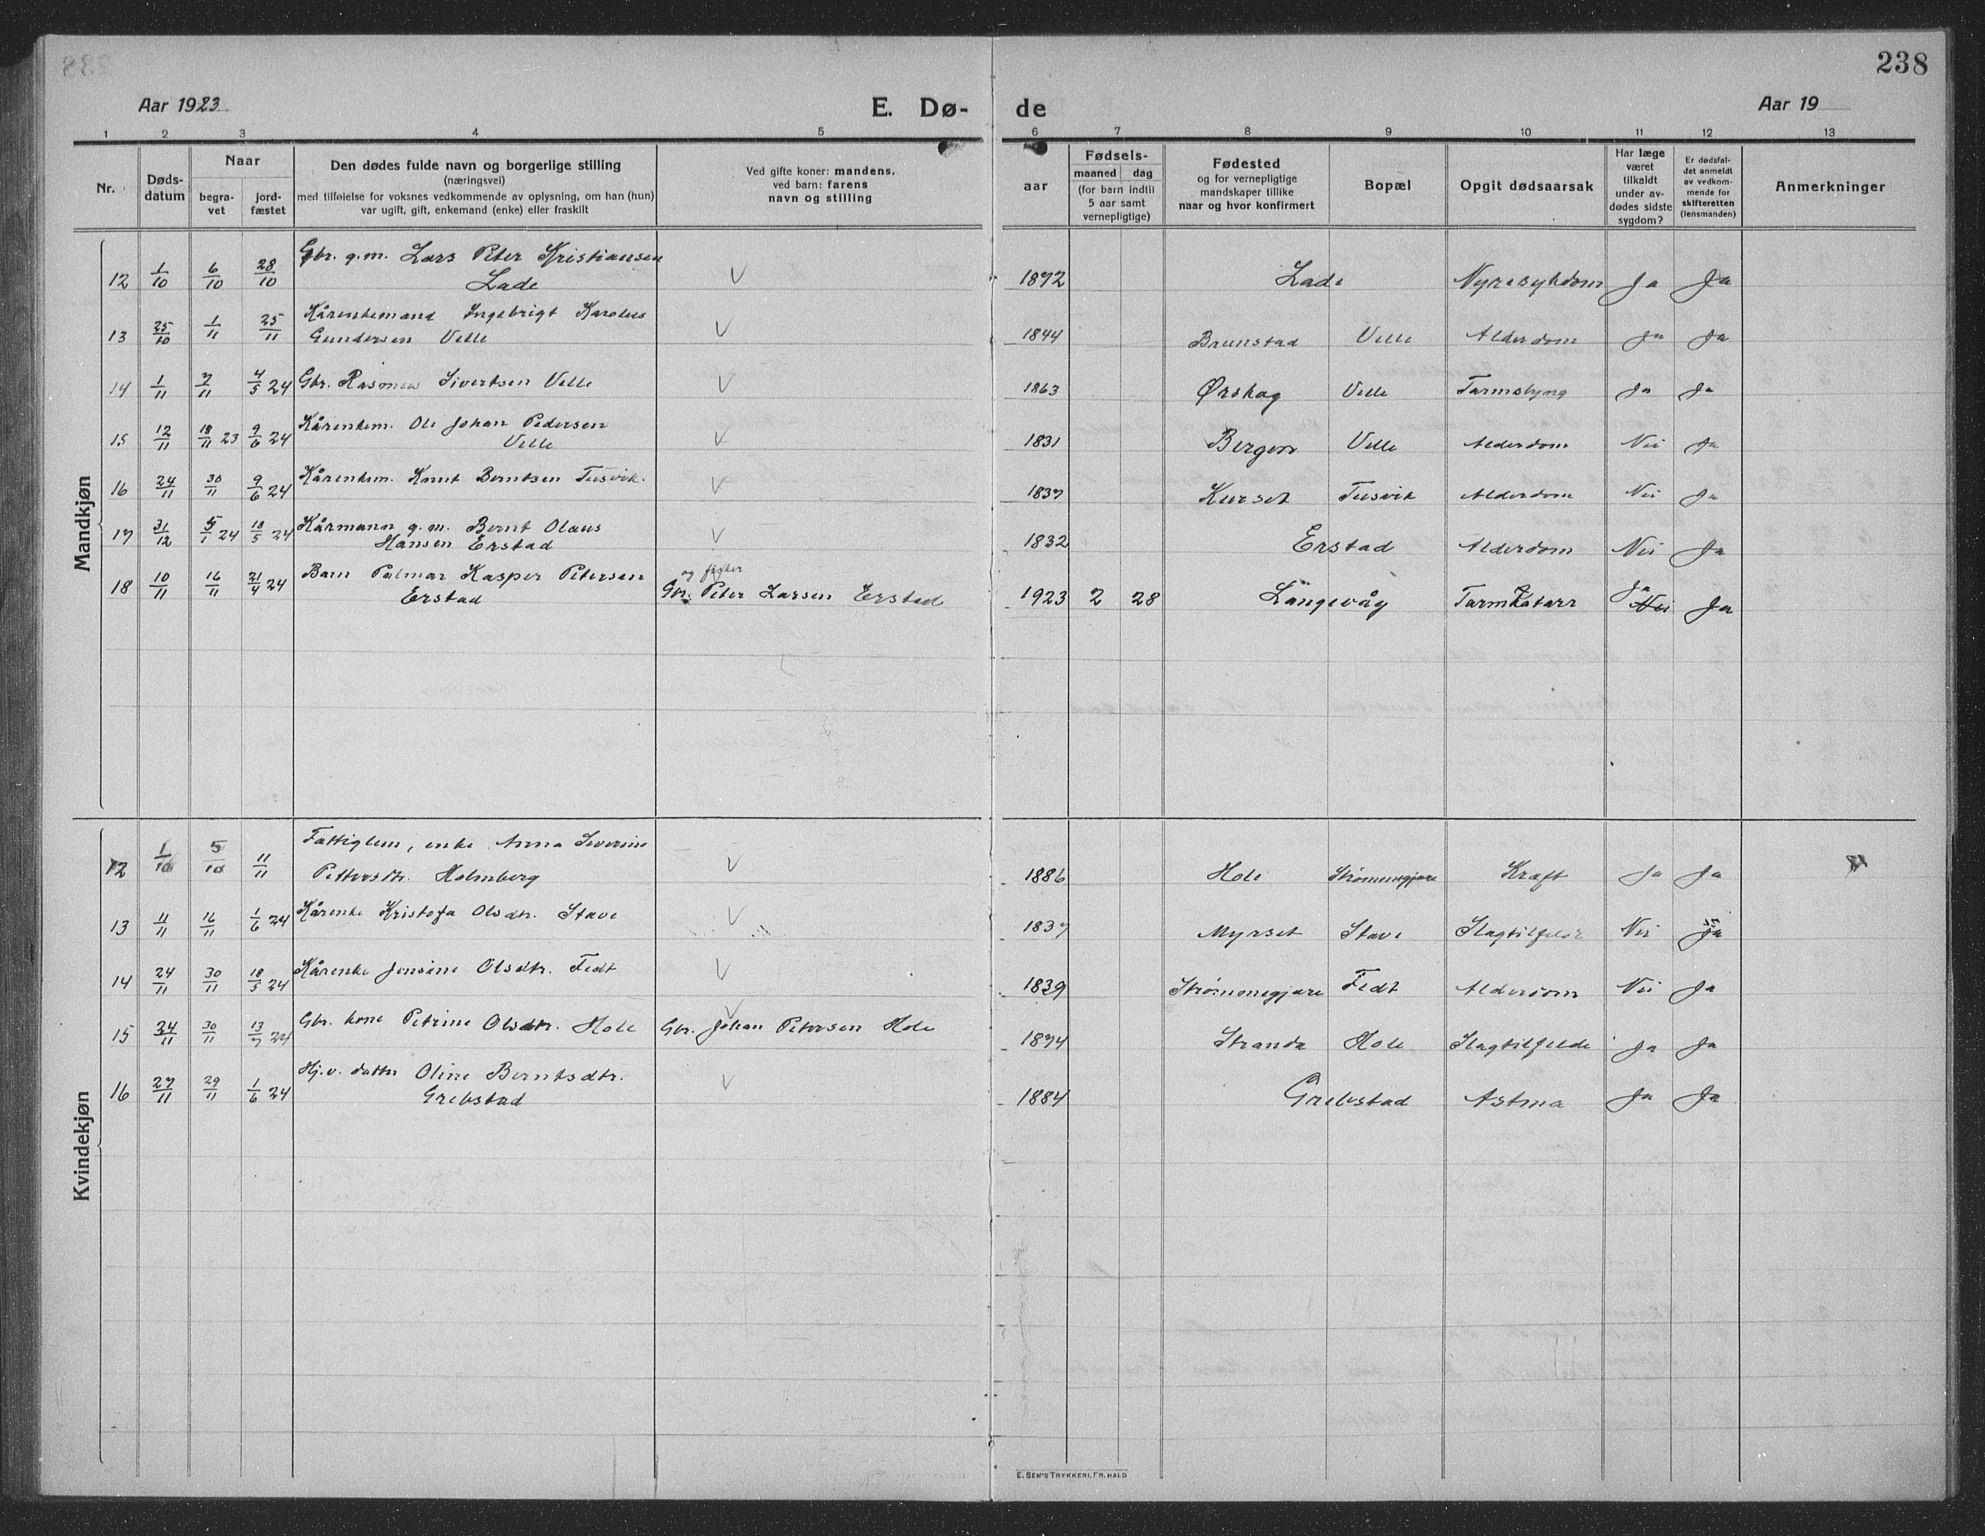 238
Aar 1923 E. Dø- de Aar 19
1 2 3 4 5 6 7 8 9 10 11 12 13
Nr.
Døds-
datum
Naar
begra-
vet
jord-
fæstet
Den dødes fulde navn og borgerlige stilling
(næringsvei)
med tilføielse for voksnes vedkommende av oplysning, om han (hun)
var ugift, gift, enkemand (enke) eller fraskilt
Ved gifte koner: mandens,
ved barn: farens
navn og stilling
aar
Fødsels-
maaned dag
(for barn indtil
5 aar samt
vernepligtige)
Fødested
og for vernepligtige
mandskaper tillike
naar og hvor konfirmert
Bopæl
Opgit dødsaarsak
Har læge
været
tilkaldt
under av-
dødes sidste
sygdom?
Er dødsfal-
det anmeldt
av vedkom-
mende for
skifteretten
(lensmanden)
Anmerkninger
Mandkjøn
Gbr. g.m. Lars Peter Kristiansen
12 1/10 6/10 28/10 Lade V 1872 Lade Nyresykdom Ja Ja
Kårenkemand Ingebrigt Karolus
13 25/10 1/11 25/11 Gundersen Velle V 1844 Brunstad Velle Alderdom Ja Ja
14 1/11 7/11 4/5 24 Gbr. Rasmus Sivertsen Velle V 1863 Ørskog Velle Tarmslyng Ja Ja
Kårenkem. Ole Johan Pedersen
15 12/11 18/11 23 9/6 24 Velle V 1831 Bergen Velle Alderdom Nei Ja
16 24/11 30/11 9/6 24 Kårenkem. Knut Berntsen Tusvik. V 1837 Kurset Tusvik Alderdom Nei Ja
17 31/12 5/1 24 18/5 24 Kårmann g.m. Bernt Olaus V
Hansen Erstad 1832 Erstad Alderdom Nei Ja
18 10/11 16/11 21/4 24 Barn Palmar Kasper Petersen og fisker
Erstad Gbr. Peter Larsen Erstad 1923 2 28 Langevåg Tarmkatarr Ja Nei Ja
Kvindekjøn
Fattiglem, enke Anna Severine
12 1/10 5/10 11/11 Pettersdtr. Holmberg V 1886 Hole Strømmegjære Kræft Ja Ja
13 11/11 16/11 1/6 24 Kårenke Kristofa Olsdtr. Stave V 1837 Myrset Stave Slagtilfelde Nei Ja
14 24/11 30/11 18/5 24 Kårenke Jensine Olsdtr. Fedt V 1839 Strømmegjære Fedt Alderdom Nei Ja
15 24/11 30/11 13/7 24 Gbr. kone Petrine Olsdtr. Hole V Gbr. Johan Petersen Hole 1874 Stranda Hole Slagtilfelde Ja Ja
16 27/11 29/11 1/6 24 Hj.v. datter Oline Berntsdtr. V
Grebstad 1884 Grebstad Astma Ja Ja
E. SEM'S TRYKKERI, FR.HALD